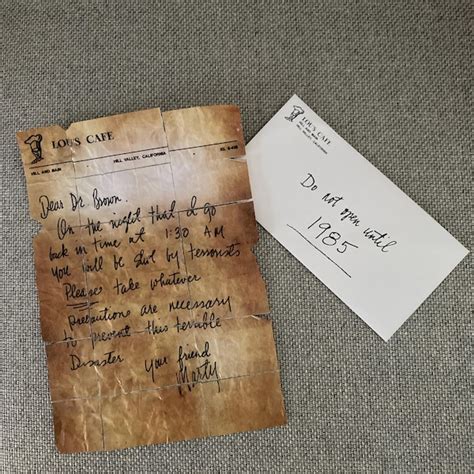 LOU'S CAFE
HILL AND MAIN
HILL VALLEY, CALIFORNIA
Dear Dr. Brown.
On the night that I go
back in time at 1:30 AM
You will be shot by terrorists
Please take whatever
precautions are necessary
to prevent this terrible
Disaster
Your friend
Marty
LOU'S CAFE
Do not open until
1985